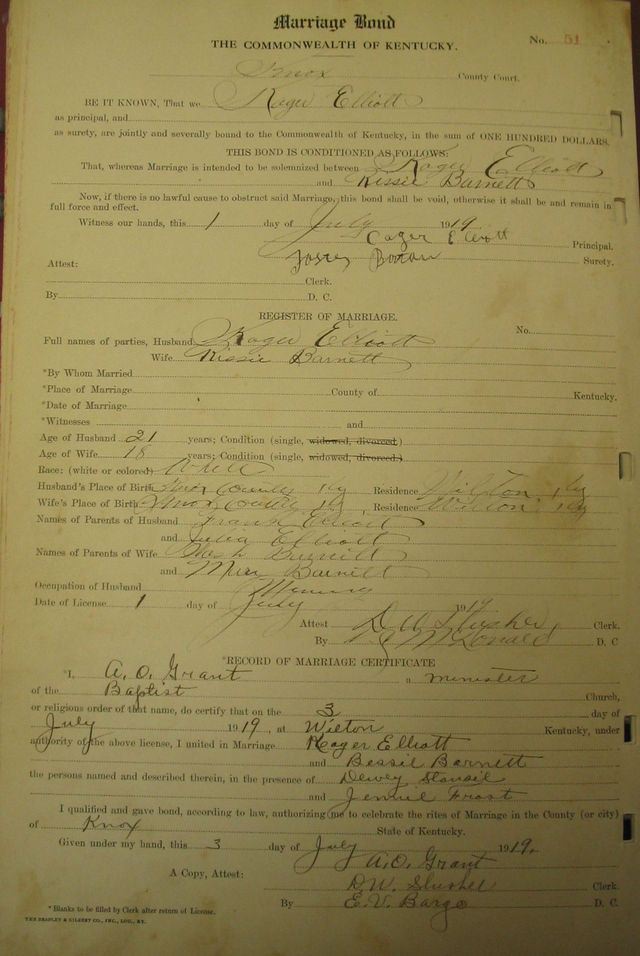 Marriage Bond
THE COMMONWEALTH OF KENTUCKY. No. 51
Knox County Court.
BE IT KNOWN, That we Kager Elliott
as principal, and
as surety, are jointly and severally bound to the Commonwealth of Kentucky, in the sum of ONE HUNDRED DOLLARS.
THIS BOND IS CONDITIONED AS FOLLOWS:
That, whereas Marriage is intended to be solemnized between Kager Elliott
and Bessie Barnett
Now, if there is no lawful cause to obstruct said Marriage, this bond shall be void, otherwise it shall be and remain in
full force and effect.
Witness our hands, this 1 day of July 1919
Cager Elliott Principal.
Surety.
Attest:
Clerk.
By D. C.
REGISTER OF MARRIAGE.
No.
Full names of parties, Husband Kager Elliott
Wife Bessie Barnett
*By Whom Married
*Place of Marriage County of Kentucky.
*Date of Marriage
*Witnesses and
Age of Husband 21 years; Condition (single, widowed, divorced.)
Age of Wife 18 years; Condition (single, widowed, divorced.)
Race: (white or colored) White
Husband's Place of Birth Knox County Ky Residence Wilton, Ky
Wife's Place of Birth Knox County Ky, Residence Wilton, Ky
Names of Parents of Husband Frank Elliott
and Julia Elliott
Names of Parents of Wife Barnett
and Barnett
Occupation of Husband Mining
Date of License 1 day of July 1919
Attest D W Slusher Clerk.
By McDonald D. C
*RECORD OF MARRIAGE CERTIFICATE
*I, A. O. Grant a minister
of the Baptist Church,
or religious order of that name, do certify that on the 3 day of
July 1919, at Wilton Kentucky, under
authority of the above license, I united in Marriage Kager Elliott
and Bessie Barnett
the persons named and described therein, in the presence of Dewey Stansil
and Jennie Frost
I qualified and gave bond, according to law, authorizing me to celebrate the rites of Marriage in the County (or city)
of Knox State of Kentucky.
Given under my hand, this 3 day of July 1919.
A. O. Grant
A Copy, Attest: D. W. Slusher Clerk.
By E. V. Bargo D. C.
* Blanks to be filled by Clerk after return of License.
THE BRADLEY & GILBERT CO., INC., LOU., KY.